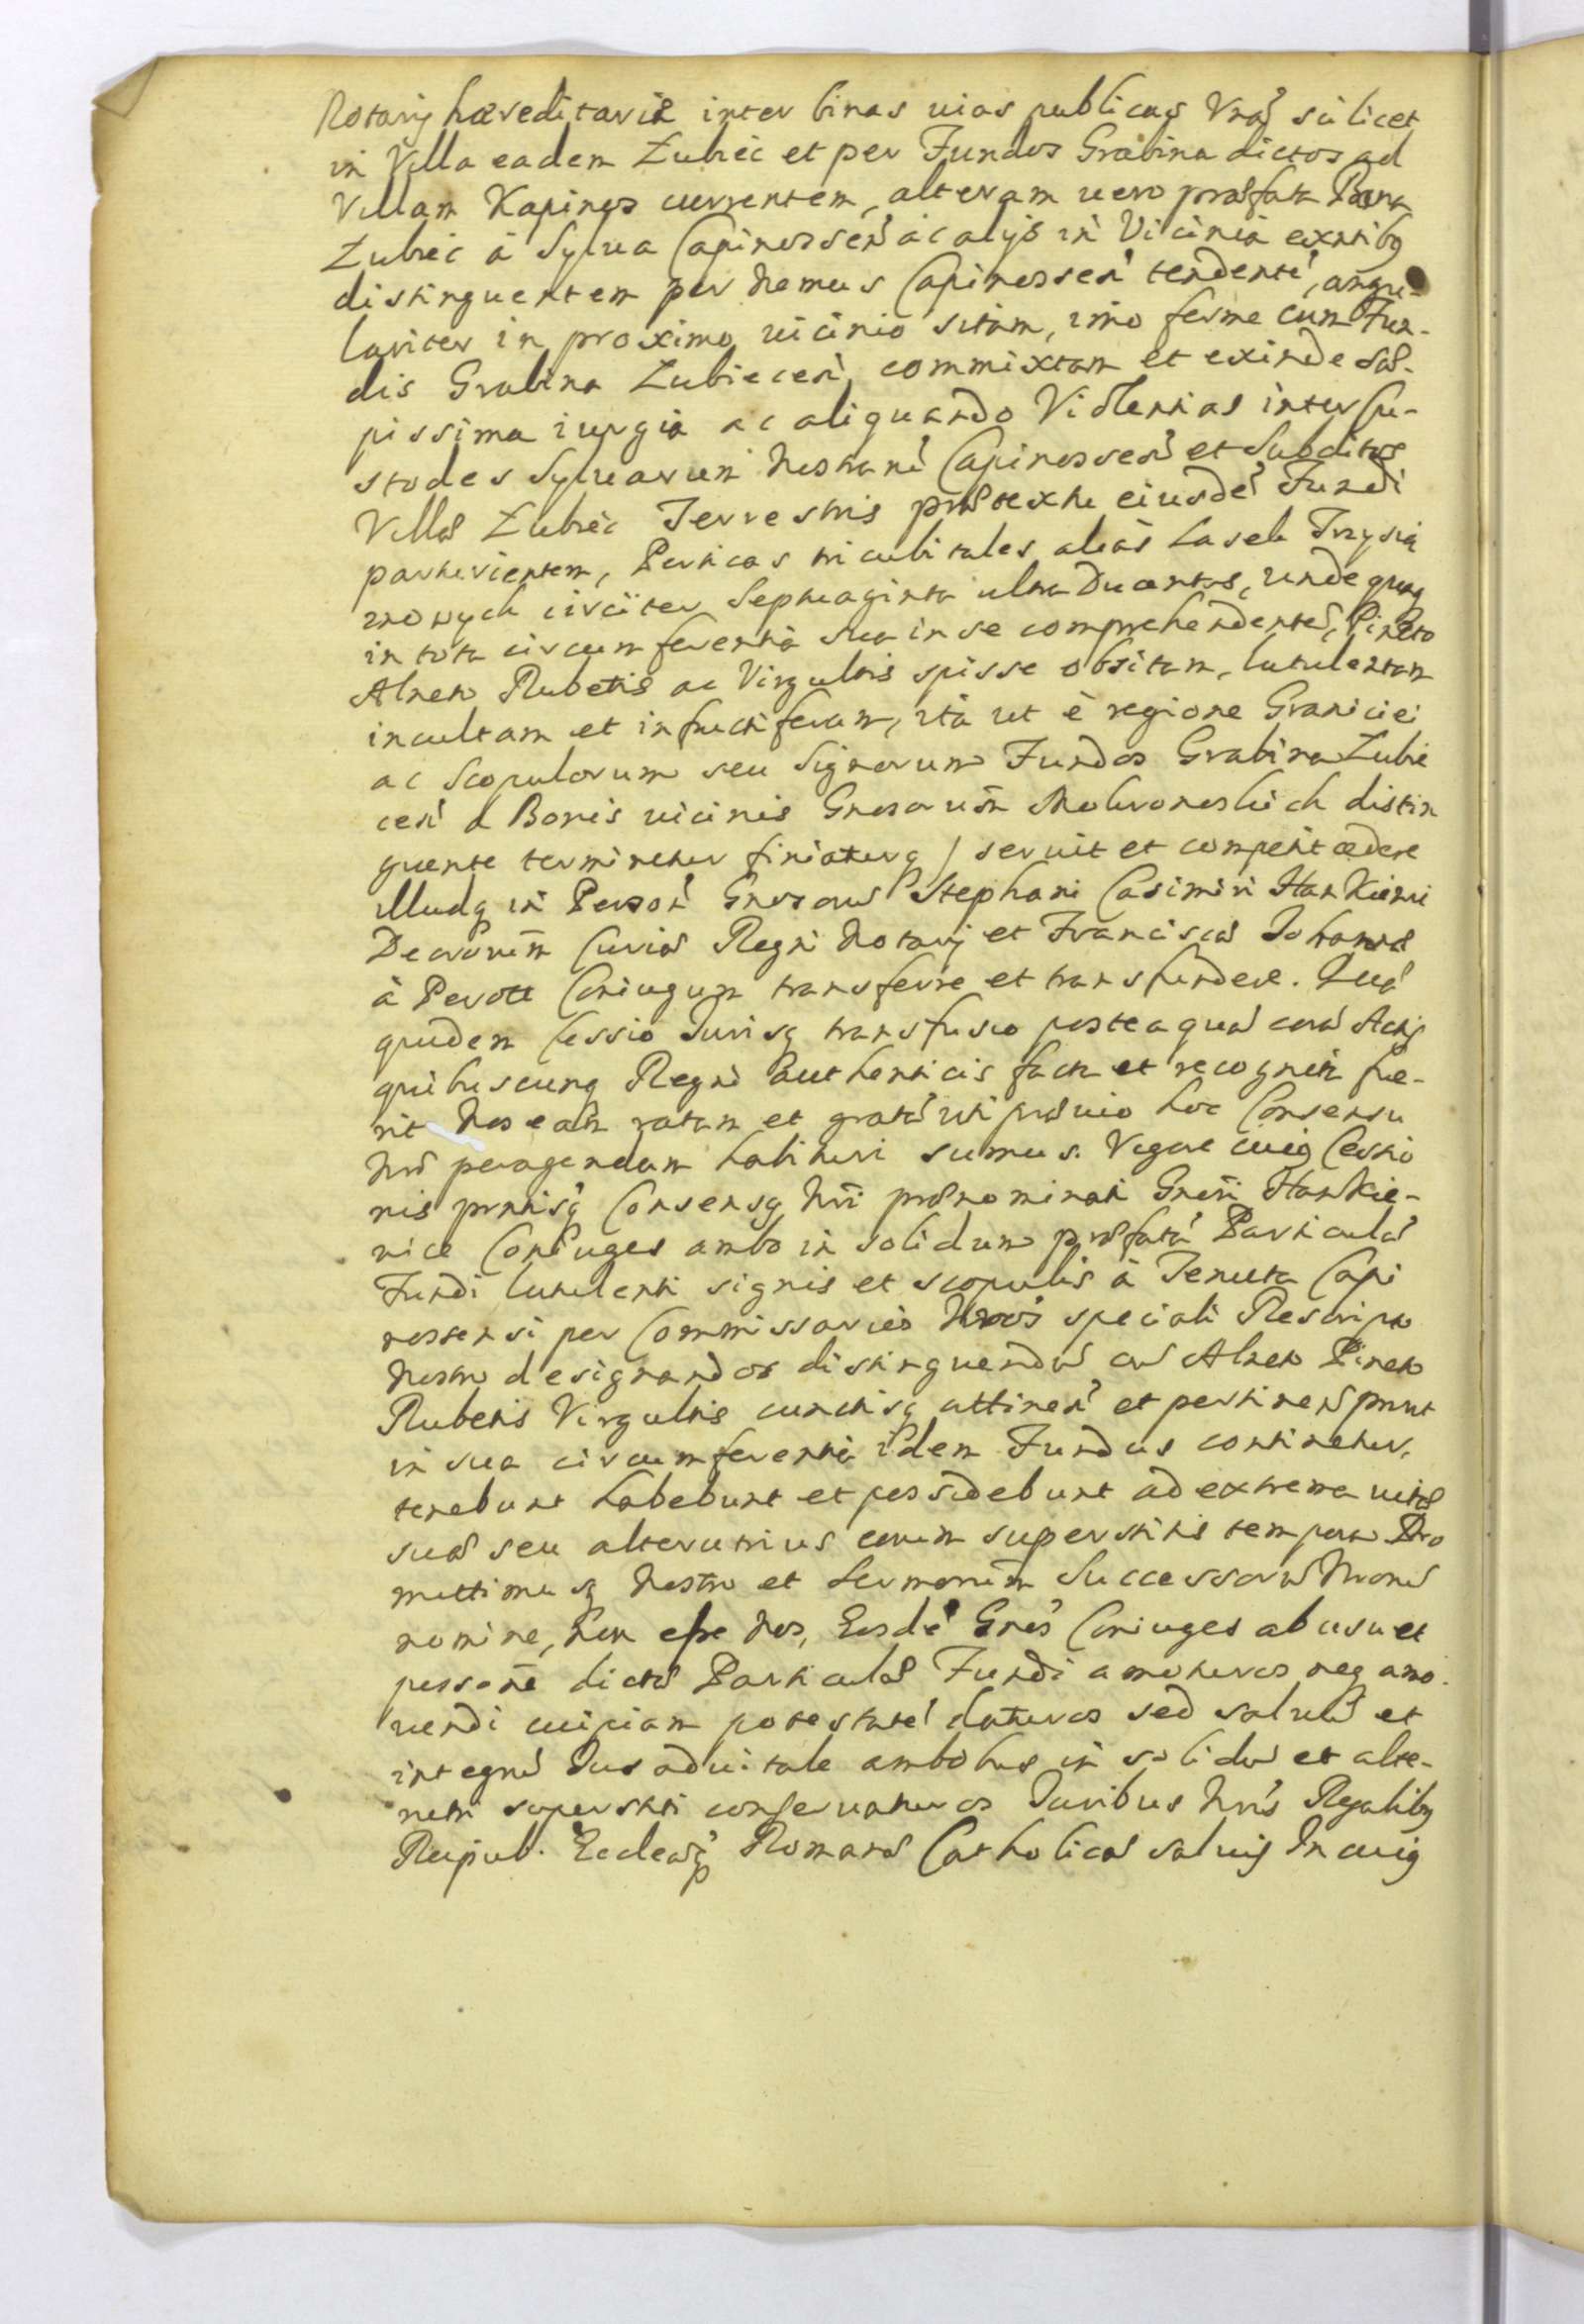 Notarij haereditaria inter binas uias publicas Vnã scilicet
in Villa eadem Zubiec et per Fundos Grabina dictos ad
Villam Kapinos currentem, alteram uero praefata Bona
Zubiec à Sylua Capinossen̄ ac alijs in Vicinia exntibq
distinguentem per Nemus Capinossen̄ tendentẽ, angu-
lariter in proximo uicinio sitam, imo ferme cum Fun-
dis Grabina Zubiecen̄, commixtam et exinde sae-
pissima iurgia ac aliquando Violentias inter Cu-
stodes Syluarum Nostrarũ Capinossen̄ et Subditos
Villae Zubiec Terrestris praetextu eiusdẽ Fundi
parturientem, Perticas tricubitales aliàs Lasek Trzysią
znowych circiter Septuaginta ultra Ducentas, undequaq
in tota circumferentia sua in se comprehendentẽ, Pineto
Alneto Rubetis ac Virgultis spisse obsitam, lutulentam
incultam et infructiferam, ita ut è regione Graniciei
ac Scopulorum seu Signorum Fundos Grabina Zubie
cen̄ à Bonis uicinis Grosorum̄ Mokronoskich distin
guente terminetur finiaturq / seruit et competit cedere
illudq in Person̄ Gnosorum Stephani Casimiri Hankiewi
Decretorum̄ Curiae Regni Notarij et Franciscae Johannae
à Perott Coniugum transferre et transfundere. Quae
quidem Cessio Jurisq transfusio posteaquã corã Actis
quibuscunq Regni authenticis facta et recognita fue-
rit Nos eam ratam et gratã uti praeuio hoc Consensu
Nrõ peragendam habituri sumus. Vigore cuiq Cessio
nis prntisq Consensq Nrĩ praenominati Gnesi Hankie-
wice Coniuges ambo in solidum praefatã Particulã
Fundi lutulenti signis et scopulis à Tenuta Capi
nossensi per Commissarios Nros speciali Rescripto
Nostro designandos distinguendã cũ Alneto Pineto
Rubetis Virgultis cunctisq attinen̄ et pertinen̄ prout
in sua circumferentia idem Fundus continetur,
tenebunt habebunt et possidebunt ad extrema uitae
suae seu alterutrius eorum superstitis tempora Pro
mittimusq Nostro et Sermorum̄ Successorũ Nrorũ
nomine, Non esse Nos, Eosdẽ Gnos Coniuges ab usu et
possone dictae Particulae Fundi amoturos neq amo-
uendi cuipiam potestatẽ daturos sed saluũ et
integrũ Jus aduitale ambobus in solidũ et alte-
rutri superstiti conseruaturos Juribus Nrĩs Regalibq
Reipub. Eccleaeq Romanae Catholicae saluis In cuiq